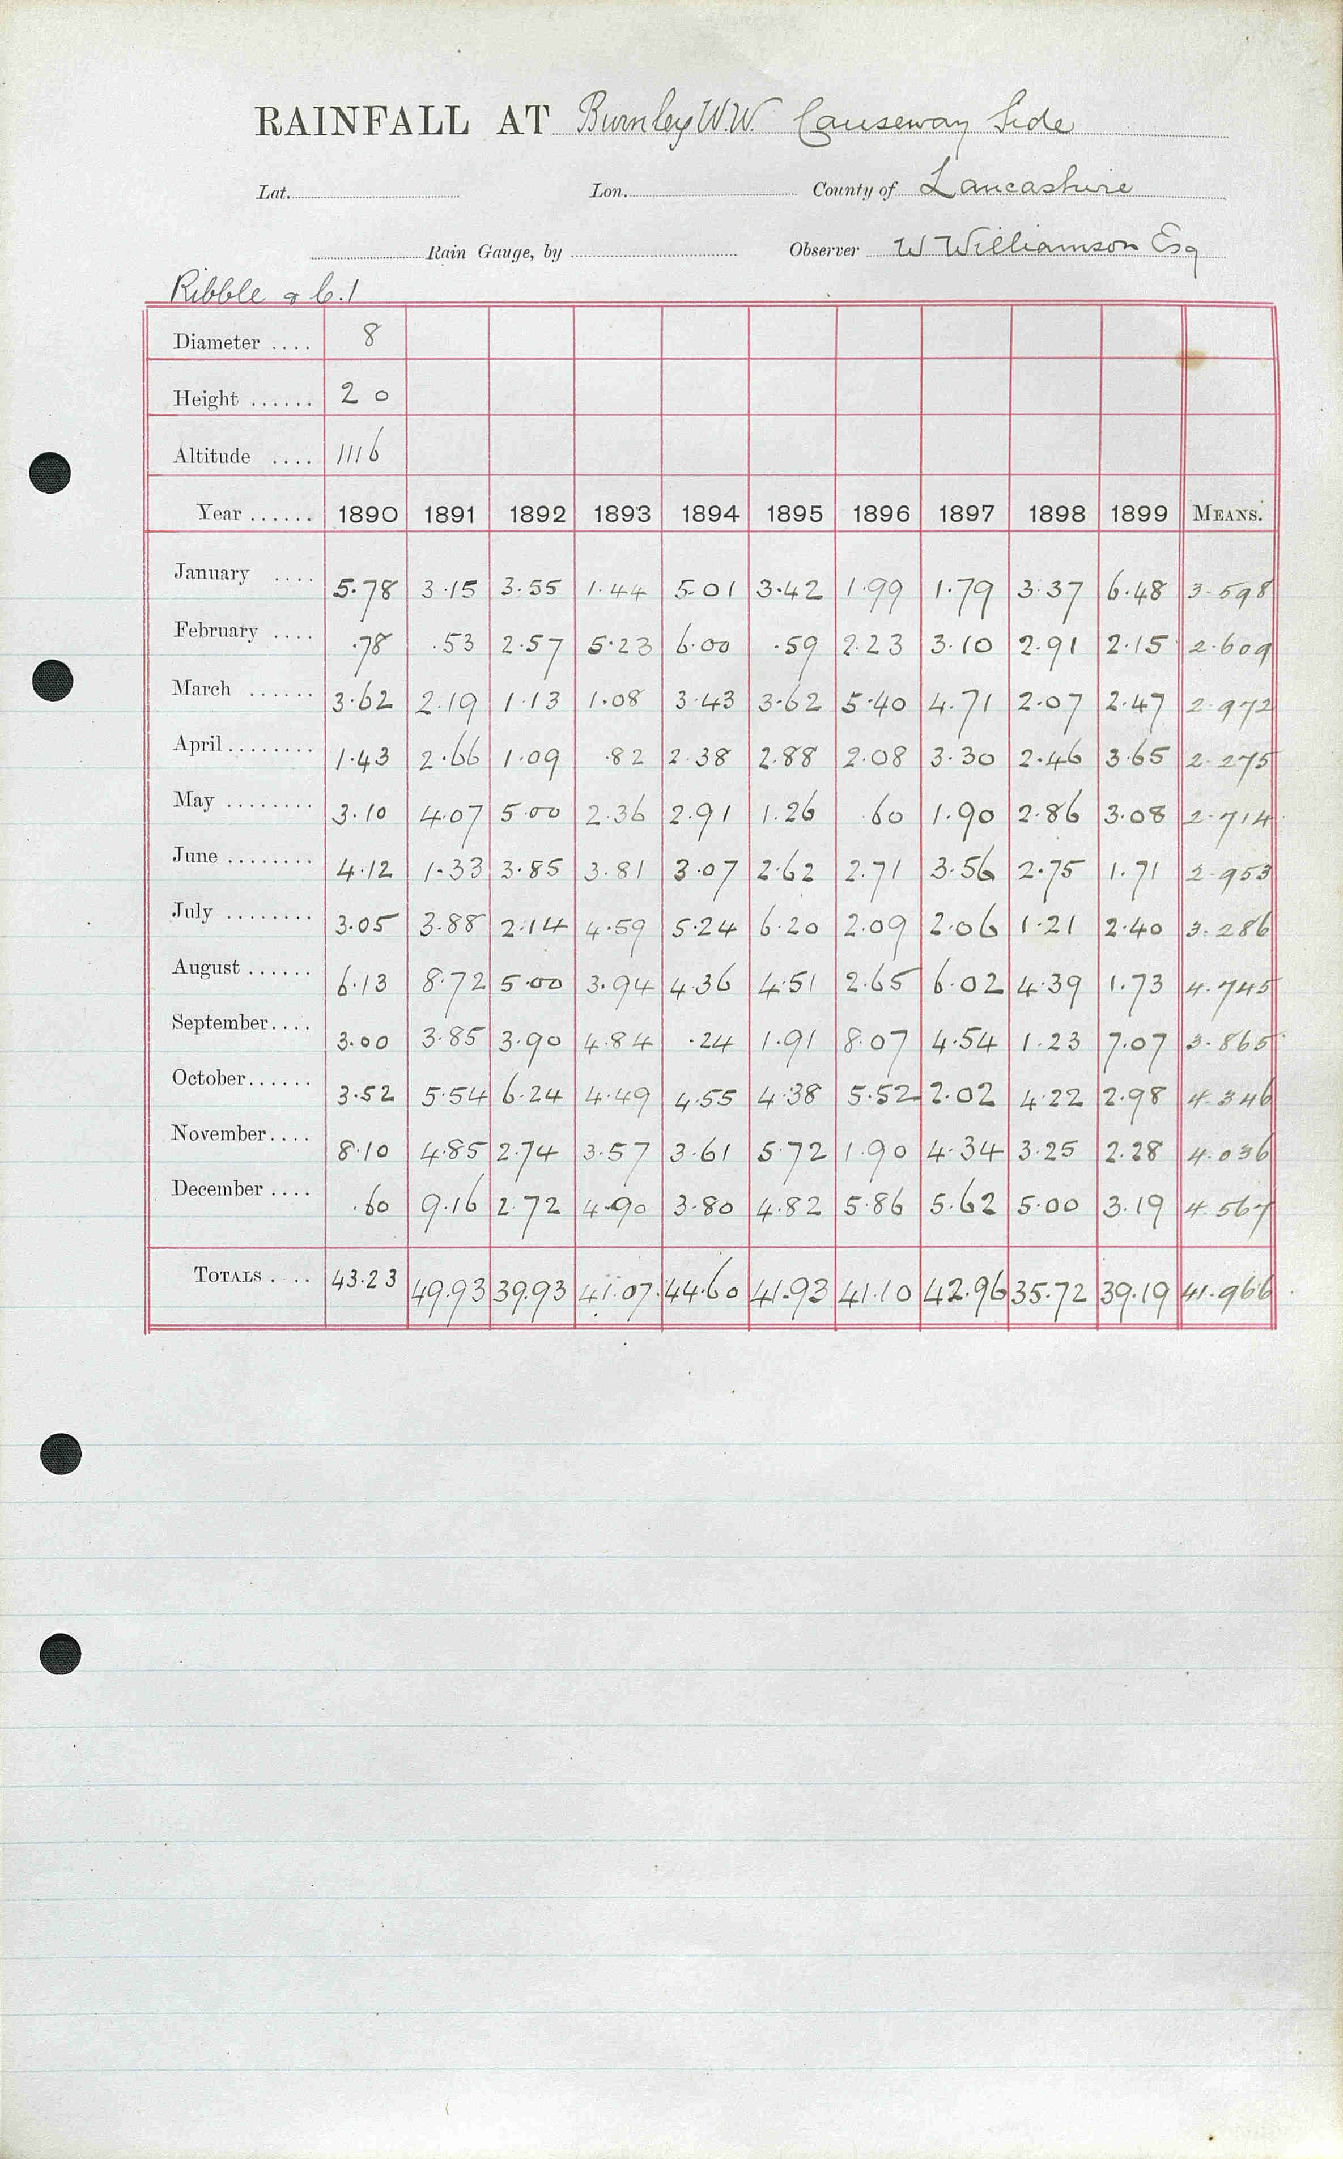 RAINFALL AT Burnley W.W. Causeway Side
Lat. Lon. County of Lancashire
Rain Gauge, by Observer W Williamson Esq
Ribble & C.1
Diameter .... 8
Height ...... 2 0
Altitude .... 1116
Year ...... 1890 1891 1892 1893 1894 1895 1896 1897 1898 1899 MEANS.
January .... 5.78 3.15 3.55 1.44 5.01 3.42 1.99 1.79 3.37 6.48 3.598
February .... .78 .53 2.57 5.23 6.00 .59 2.23 3.10 2.91 2.15 2.609
March ...... 3.62 2.19 1.13 1.08 3.43 3.62 5.40 4.71 2.07 2.47 2.972
April ........ 1.43 2.66 1.09 .82 2.38 2.88 2.08 3.30 2.46 3.65 2.275
May ........ 3.10 4.07 5.00 2.36 2.91 1.26 .60 1.90 2.86 3.08 2.714
June ........ 4.12 1.33 3.85 3.81 3.07 2.62 2.71 3.56 2.75 1.71 2.953
July ........ 3.05 3.88 2.14 4.59 5.24 6.20 2.09 2.06 1.21 2.40 3.286
August ...... 6.13 8.72 5.00 3.94 4.36 4.51 2.65 6.02 4.39 1.73 4.745
September .... 3.00 3.85 3.90 4.84 .24 1.91 8.07 4.54 1.23 7.07 3.865
October ...... 3.52 5.54 6.24 4.49 4.55 4.38 5.52 2.02 4.22 2.98 4.346
November .... 8.10 4.85 2.74 3.57 3.61 5.72 1.90 4.34 3.25 2.28 4.036
December .... .60 9.16 2.72 4.90 3.80 4.82 5.86 5.62 5.00 3.19 4.567
TOTALS .... 43.23 49.93 39.93 41.07 44.60 41.93 41.10 42.96 35.72 39.19 41.966